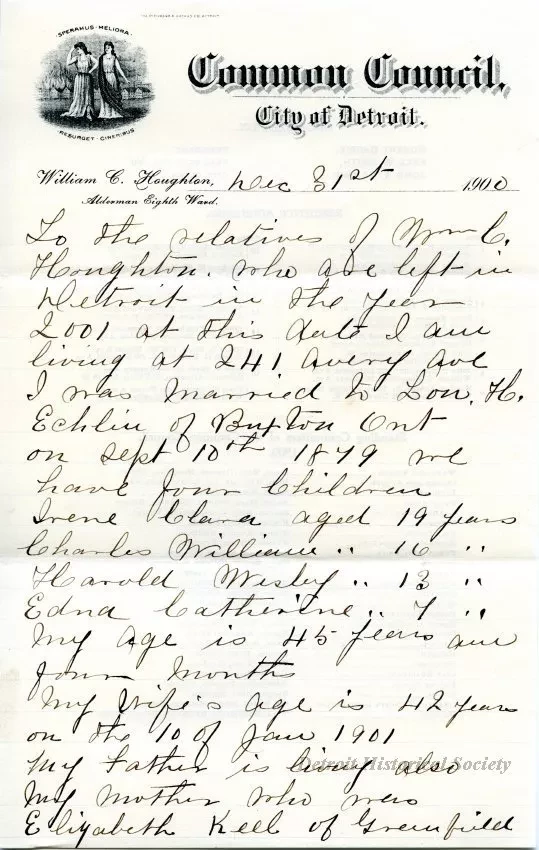 SPERAMUS MELIORA
RESURGET CINERIBUS
Common Council,
City of Detroit.
William C. Houghton,
Alderman Eighth Ward.
Dec 31st 1900
To the relatives of Wm C.
Houghton. who are left in
Detroit in the year
2001 at this date I am
living at 241 Avery Ave
I was married to Lou. H.
Echlin of Buxton Ont
on Sept 10th 1879 we
have four Children
Irene Clara aged 19 years
Charles William " 16 "
Harold Wesley " 13 "
Edna Catherine " 7 "
My Age is 45 years and
four months
My Wife's Age is 42 years
on the 10 of Jan 1901
My Father is living also
My Mother who was
Elizabeth Keel of Greenfield
Detroit Historical Society